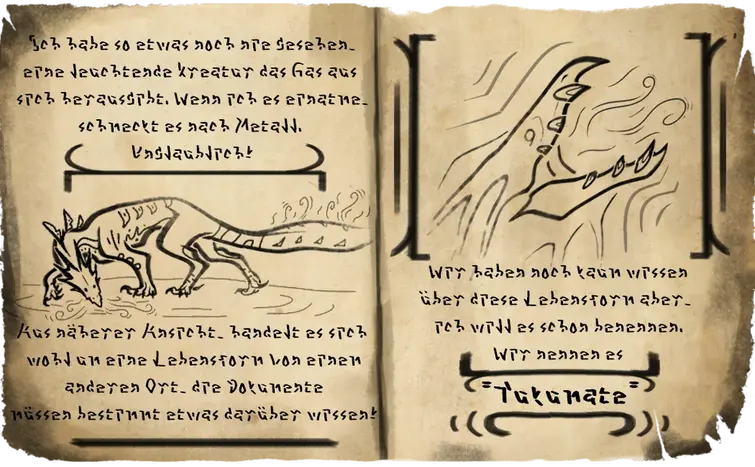 Ich habe so etwas noch nie gesehen_
eine leuchtende kreatur das Gas aus
sich herausgibt. Wenn ich es einatme_
schmeckt es nach Metall.
Unglaublich!
Aus näherer Ansicht_ handelt es sich
wohl um eine Lebensform von einen
anderen Ort_ die Dokumente
müssen bestimmt etwas darüber wissen!
Wir haben noch kaum wissen
über diese Lebensform aber_
ich will es schon benennen.
Wir nennen es
"Tukumate"